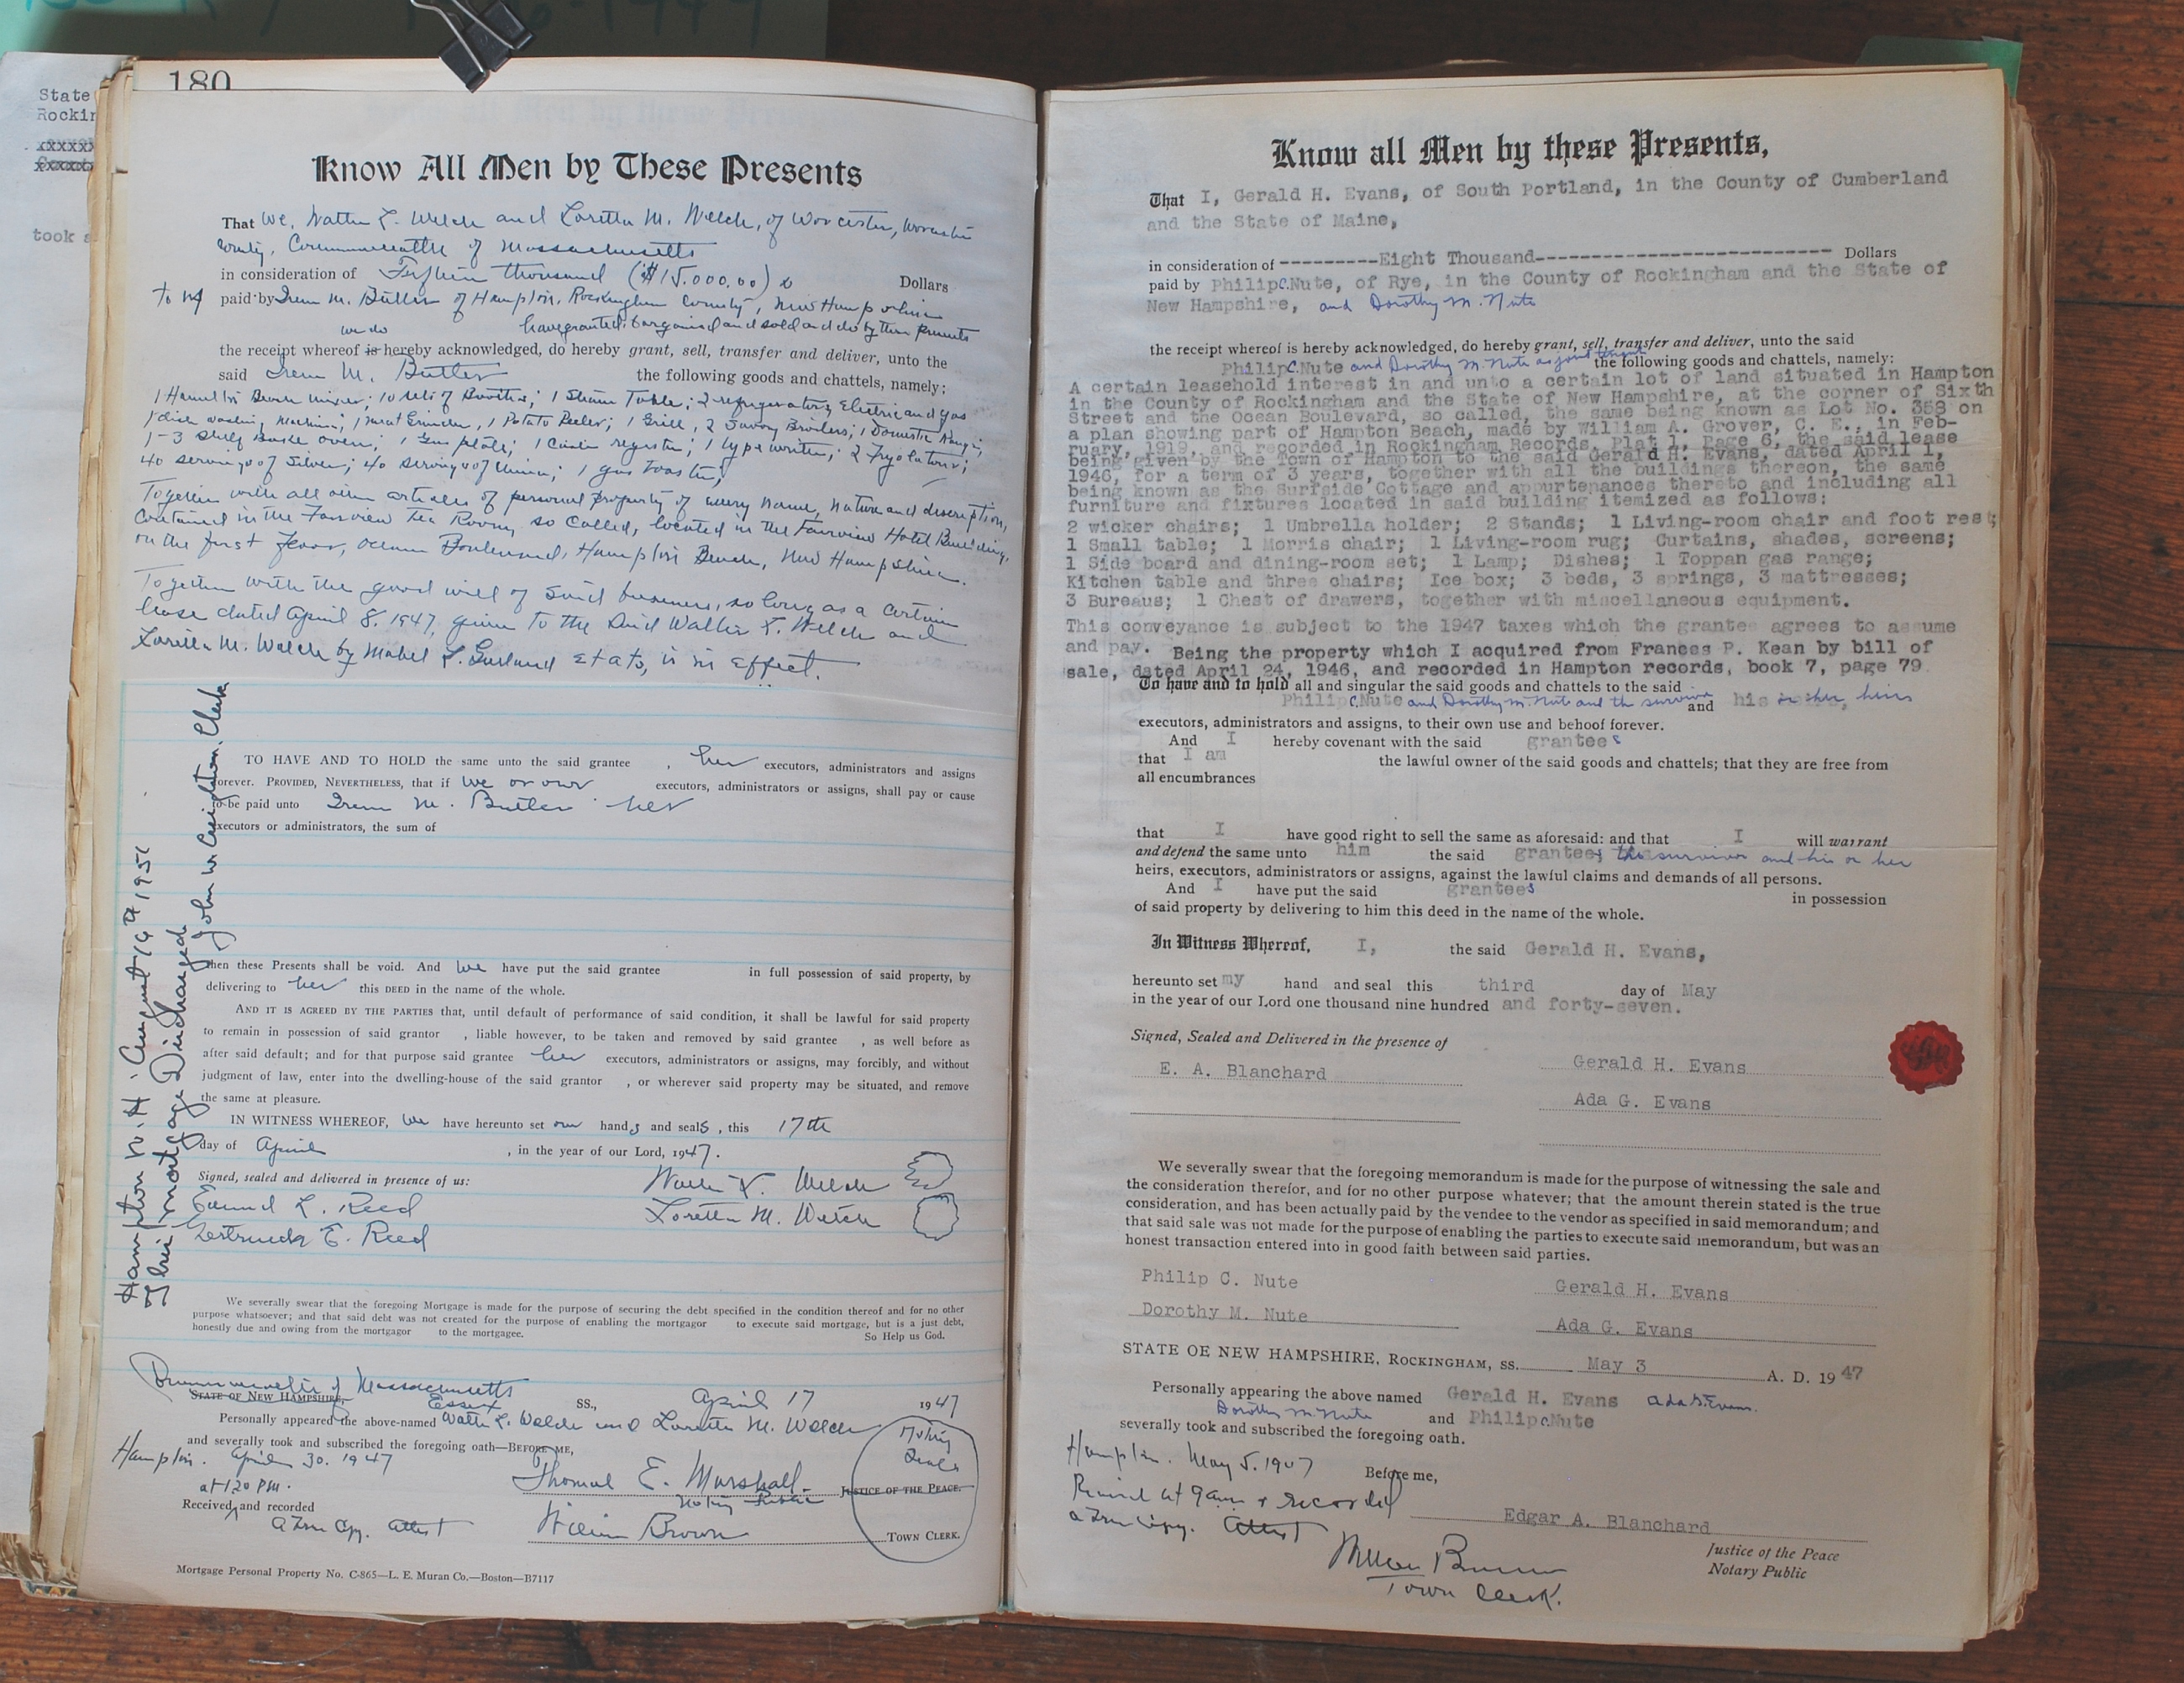 180
State
Rockin
xxxxxx
took a
Know All Men by These Presents
That We, Walter L. Welch and Loretta M. Welch, of Worcester, Worcester
County, Commonwealth of Massachusetts
in consideration of Fifteen thousand ($15,000.00) Dollars
paid by Irene M. Butler of Hampton, Rockingham County, New Hampshire
we do have granted, bargained and sold and do by these presents
the receipt whereof is hereby acknowledged, do hereby grant, sell, transfer and deliver, unto the
said Irene M. Butler the following goods and chattels, namely:
1 Hamilton Beach Mixer; 10 sets of Booths; 1 Steam Table; 2 refrigerators, Electric and gas
1 dish washing machine; 1 meat Grinder, 1 Potato Peeler; 1 Grill, 2 Savory Broilers; 1 Domestic Range;
1-3 Shelf Bake oven; 1 Gas plate; 1 Cash register; 1 typewriter; 2 Fryolators;
40 servings of Silver; 40 servings of China; 1 gas toaster;
Together with all other articles of personal property of every name, nature and description,
contained in the Fairview Tea Room, so called, located in the Fairview Hotel Building,
on the first floor, Ocean Boulevard, Hampton Beach, New Hampshire.
Together with the good will of said business, so long as a certain
lease dated April 8, 1947, given to the said Walter L. Welch and
Loretta M. Welch by Mabel L. Garland et als, is in effect.
TO HAVE AND TO HOLD the same unto the said grantee , her executors, administrators and assigns
forever. PROVIDED, NEVERTHELESS, that if we or our executors, administrators or assigns, shall pay or cause
to be paid unto Irene M. Butler her
executors or administrators, the sum of
then these Presents shall be void. And we have put the said grantee in full possession of said property, by
delivering to her this DEED in the name of the whole.
AND IT IS AGREED BY THE PARTIES that, until default of performance of said condition, it shall be lawful for said property
to remain in possession of said grantor , liable however, to be taken and removed by said grantee , as well before as
after said default; and for that purpose said grantee her executors, administrators or assigns, may forcibly, and without
judgment of law, enter into the dwelling-house of the said grantor , or wherever said property may be situated, and remove
the same at pleasure.
IN WITNESS WHEREOF, we have hereunto set our hands and seals, this 17th
day of April , in the year of our Lord, 1947.
Signed, sealed and delivered in presence of us:
Walter L. Welch
Edmund L. Reed
Loretta M. Welch
Gertrude E. Reed
Hampton N.H. August 16th, 1951
This mortgage Discharged
John W. Creighton, Clerk
We severally swear that the foregoing Mortgage is made for the purpose of securing the debt specified in the condition thereof and for no other
purpose whatsoever; and that said debt was not created for the purpose of enabling the mortgagor to execute said mortgage, but is a just debt,
honestly due and owing from the mortgagor to the mortgagee. So Help us God.
Commonwealth of Massachusetts
STATE OF NEW HAMPSHIRE, Essex SS., April 17 1947
Personally appeared the above-named Walter L. Welch and Loretta M. Welch
and severally took and subscribed the foregoing oath—BEFORE ME,
Notary
Seale
Hampton. April 30. 1947
at 1:20 PM.
Thomas E. Marshall JUSTICE OF THE PEACE.
Notary Public
Received and recorded
A True Copy. Attest
William Brown TOWN CLERK.
Mortgage Personal Property No. C-865—L. E. Muran Co.—Boston—B7117
Know all Men by these Presents,
That I, Gerald H. Evans, of South Portland, in the County of Cumberland
and the State of Maine,
in consideration of ---------Eight Thousand--------------------------- Dollars
paid by Philip C. Nute, of Rye, in the County of Rockingham and the State of
New Hampshire, and Dorothy M. Nute
the receipt whereof is hereby acknowledged, do hereby grant, sell, transfer and deliver, unto the said
Philip C. Nute and Dorothy M. Nute as joint tenants the following goods and chattels, namely:
A certain leasehold interest in and unto a certain lot of land situated in Hampton
in the County of Rockingham and the State of New Hampshire, at the corner of Sixth
Street and the Ocean Boulevard, so called, the same being known as Lot No. 358 on
a plan showing part of Hampton Beach, made by William A. Grover, C. E., in Feb-
ruary, 1919, and recorded in Rockingham Records, Plat 1, Page 6, the said lease
being given by the Town of Hampton to the said Gerald H. Evans, dated April 1,
1946, for a term of 3 years, together with all the buildings thereon, the same
being known as the Surfside Cottage and appurtenances thereto and including all
furniture and fixtures located in said building itemized as follows:
2 wicker chairs; 1 Umbrella holder; 2 Stands; 1 Living-room chair and foot rest;
1 Small table; 1 Morris chair; 1 Living-room rug; Curtains, shades, screens;
1 Side board and dining-room set; 1 Lamp; Dishes; 1 Toppan gas range;
Kitchen table and three chairs; Ice box; 3 beds, 3 springs, 3 mattresses;
3 Bureaus; 1 Chest of drawers, together with miscellaneous equipment.
This conveyance is subject to the 1947 taxes which the grantee agrees to assume
and pay. Being the property which I acquired from Frances P. Kean by bill of
sale, dated April 24, 1946, and recorded in Hampton records, book 7, page 79.
To have and to hold all and singular the said goods and chattels to the said
Philip C. Nute and Dorothy M. Nute and the survivor and his or her, heirs
executors, administrators and assigns, to their own use and behoof forever.
And I hereby covenant with the said grantees
that I am the lawful owner of the said goods and chattels; that they are free from
all encumbrances
that I have good right to sell the same as aforesaid: and that I will warrant
and defend the same unto him the said grantees, the survivor and his or her
heirs, executors, administrators or assigns, against the lawful claims and demands of all persons.
And I have put the said grantees in possession
of said property by delivering to him this deed in the name of the whole.
In Witness Whereof, I, the said Gerald H. Evans,
hereunto set my hand and seal this third day of May
in the year of our Lord one thousand nine hundred and forty-seven.
Signed, Sealed and Delivered in the presence of
E. A. Blanchard Gerald H. Evans
Ada G. Evans
We severally swear that the foregoing memorandum is made for the purpose of witnessing the sale and
the consideration therefor, and for no other purpose whatever; that the amount therein stated is the true
consideration, and has been actually paid by the vendee to the vendor as specified in said memorandum; and
that said sale was not made for the purpose of enabling the parties to execute said memorandum, but was an
honest transaction entered into in good faith between said parties.
Philip C. Nute Gerald H. Evans
Dorothy M. Nute Ada G. Evans
STATE OF NEW HAMPSHIRE, ROCKINGHAM, SS. May 3 A. D. 1947
Personally appearing the above named Gerald H. Evans Ada G. Evans.
Dorothy M. Nute and Philip C. Nute
severally took and subscribed the foregoing oath.
Hampton. May 5. 1947 Before me,
Received at 9am & recorded
a True Copy. Attest
Edgar A. Blanchard
William Brown
Town Clerk.
Justice of the Peace
Notary Public